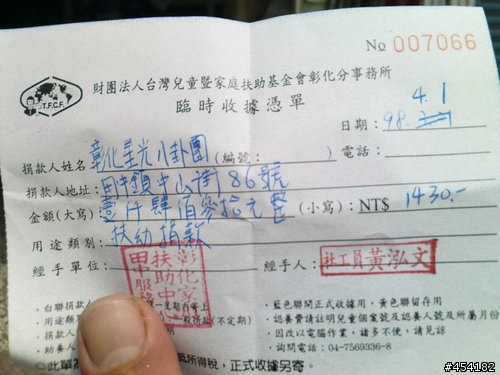 No 007066
T.F.C.F.
財團法人台灣兒童暨家庭扶助基金會彰化分事務所
臨時收據憑單
日期：98. 4.1
捐款人姓名：彰化星光八卦團（編號：　　　）電話：
捐款人地址：田中鎮中山街86號
金額(大寫)：壹仟肆佰參拾元整 (小寫)：NT$ 1430.-
用途類別：扶幼捐款
經手單位： 經手人：社工員黃泓文
彰化家
扶助中
田中服務
．白聯捐款人
．用途類別 捐款(不定期)
．捐款人
．助養人
．藍色聯開正式收據用，黃色聯留存用
．認養費請註明兒童個案號及認養所屬月份
．因改以電腦作業，諸多不便，請見諒
．詢問電話：04-7569336-8
◎此單 抵所得稅，正式收據另寄。
#454182